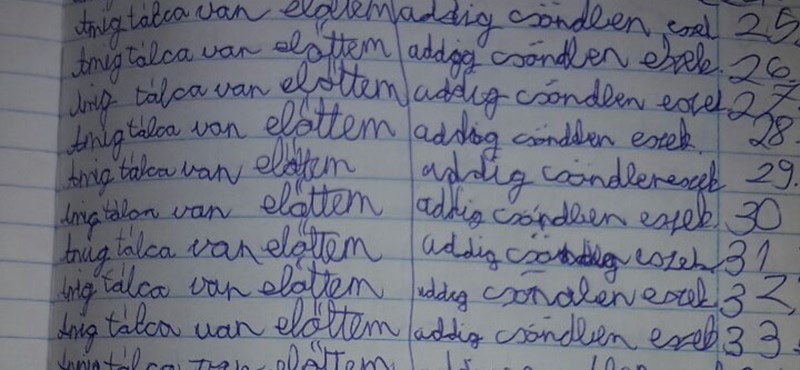 Amig tálca van előttem addig csöndben eszek 25.
Amig tálca van előttem addig csöndben eszek. 26.
Amig tálca van előttem addig csöndben eszek 27
Amig tálca van előttem addig csöndben eszek. 28.
Amig tálca van előttem addig csöndben eszek 29.
Amig tálca van előttem addig csöndben eszek. 30
Amig tálca van előttem addig eszek 31
Amig tálca van előttem addig csöndben eszek. 32.
Amig tálca van előttem addig csöndben eszek 33.
tálca van előttem